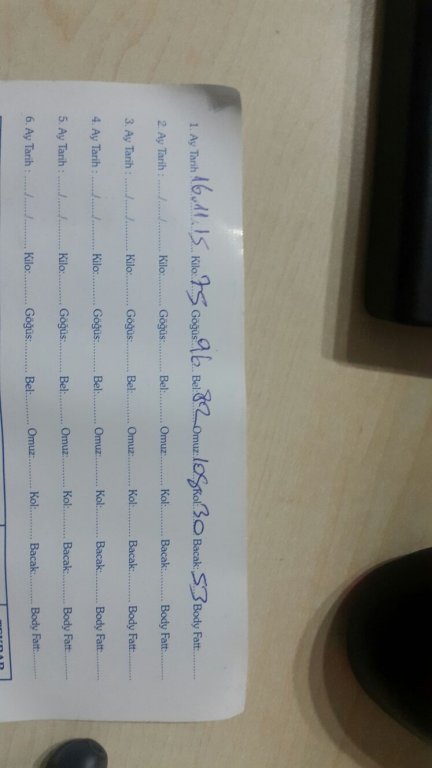 1. Ay Tarih 16.11.15 Kilo: 75 Göğüs: 96 Bel: 82 Omuz: 108 Kol: 30 Bacak: 53 Body Fatt:..........
2. Ay Tarih : ....../....../......... Kilo:.......... Göğüs:.......... Bel:.......... Omuz:.......... Kol:.......... Bacak:.......... Body Fatt:..........
3. Ay Tarih : ....../....../......... Kilo:.......... Göğüs:.......... Bel:.......... Omuz:.......... Kol:.......... Bacak:.......... Body Fatt:..........
4. Ay Tarih : ....../....../......... Kilo:.......... Göğüs:.......... Bel:.......... Omuz:.......... Kol:.......... Bacak:.......... Body Fatt:..........
5. Ay Tarih : ....../....../......... Kilo:.......... Göğüs:.......... Bel:.......... Omuz:.......... Kol:.......... Bacak:.......... Body Fatt:..........
6. Ay Tarih : ....../....../......... Kilo:.......... Göğüs:.......... Bel:.......... Omuz:.......... Kol:.......... Bacak:.......... Body Fatt:..........